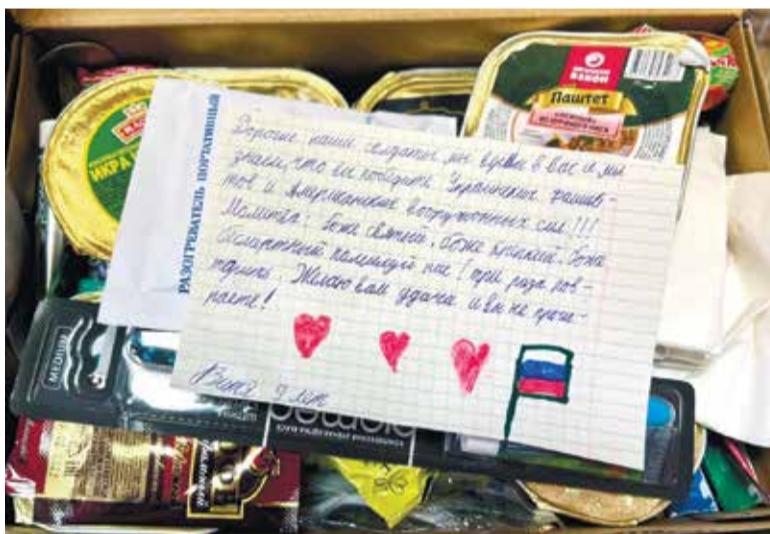 БЕКОН
Паштет
ИКРА
РАЗОГРЕВАТЕЛЬ ПОРТАТИВНЫЙ
Дорогие наши солдаты мы верим в вас и мы
знаем, что вы победите Украинских фашис-
тов и Американских вооружонных сил!!!
Молитва: Боже святый, Боже крепкий, Боже
бесмертный помилуй нас! три раза пов-
торить. Желаю вам удачи и вы не прои-
граете!
9 лет
MEDIUM